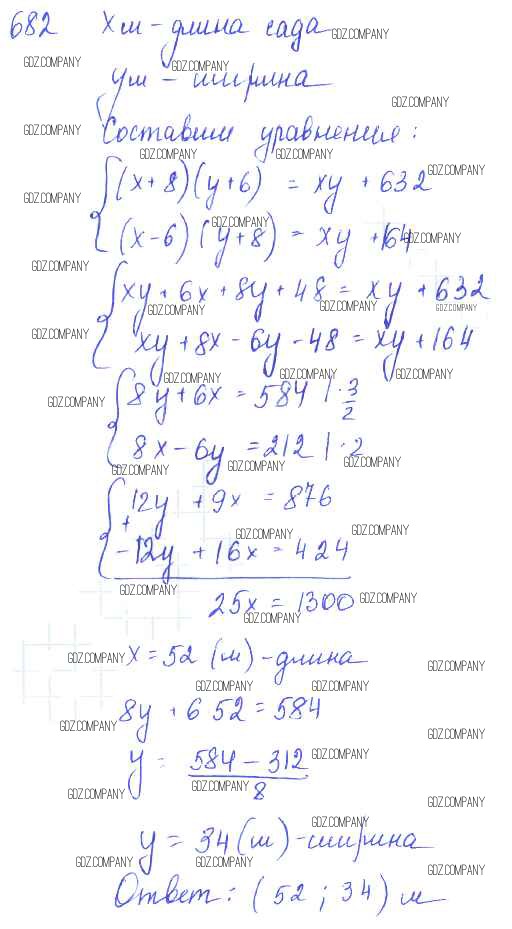 682 Xм - длина сада
yм - ширина
Составим уравнения:
(x+8)(y+6) = xy + 632
(x-6)(y+8) = xy + 164
xy + 6x + 8y + 48 = xy + 632
xy + 8x - 6y - 48 = xy + 164
8y + 6x = 584 | · 3/2
8x - 6y = 212 | · 2
12y + 9x = 876
+
-12y + 16x = 424
25x = 1300
x = 52 (м) - длина
8y + 6 52 = 584
y = 584 - 312 / 8
y = 34 (м) - ширина
Ответ: (52; 34) м
GDZ.COMPANY